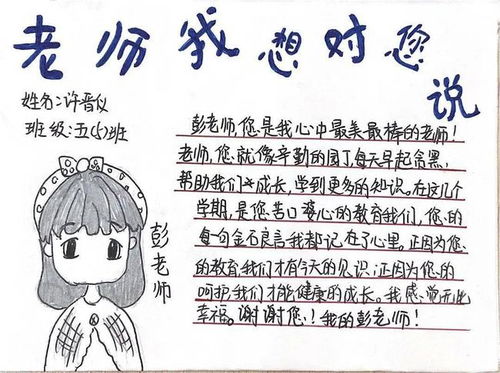 老师我想对您
说
姓名:许晋仪
班级:五(5)班
彭老师,您是我心中最美最棒的老师!
老师,您就像辛勤的园丁每天早起贪黑,
帮助我们成长,学到更多的知识。在这几个
学期,是您苦口婆心的教育我们,您的
每一句金石良言我都记在了心里。正因为您
的教育我们才有今天的见识;正因为您的
呵护我们才能健康的成长。我感觉无比
幸福。谢谢您!我的彭老师!
彭老师